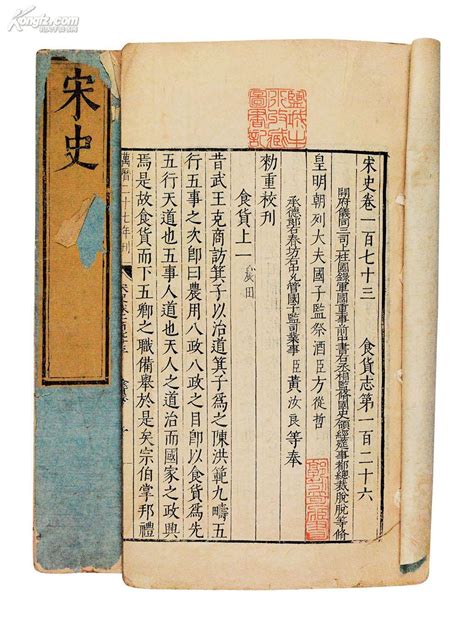 Kongfz.com
宋史
宋史卷一百七十三 食貨志第一百二十六
開府儀同三司上柱國錄軍國重事前中書右丞相監修國史領經筵事都總裁脫脫等修
皇明朝列大夫國子監祭酒臣方從哲
承德郎右春坊右中允管國子監司業事臣黃汝良等奉
勑重校刊
食貨上一 農田
昔武王克商訪箕子以治道箕子爲之陳洪範九疇五
行五事之次卽曰農用八政八政之目卽以食貨爲先
五行天道也五事人道也天人之道治而國家之政興
焉是故食貨而下五卿之職備舉於是矣宗伯掌邦禮
萬曆二十七年刊